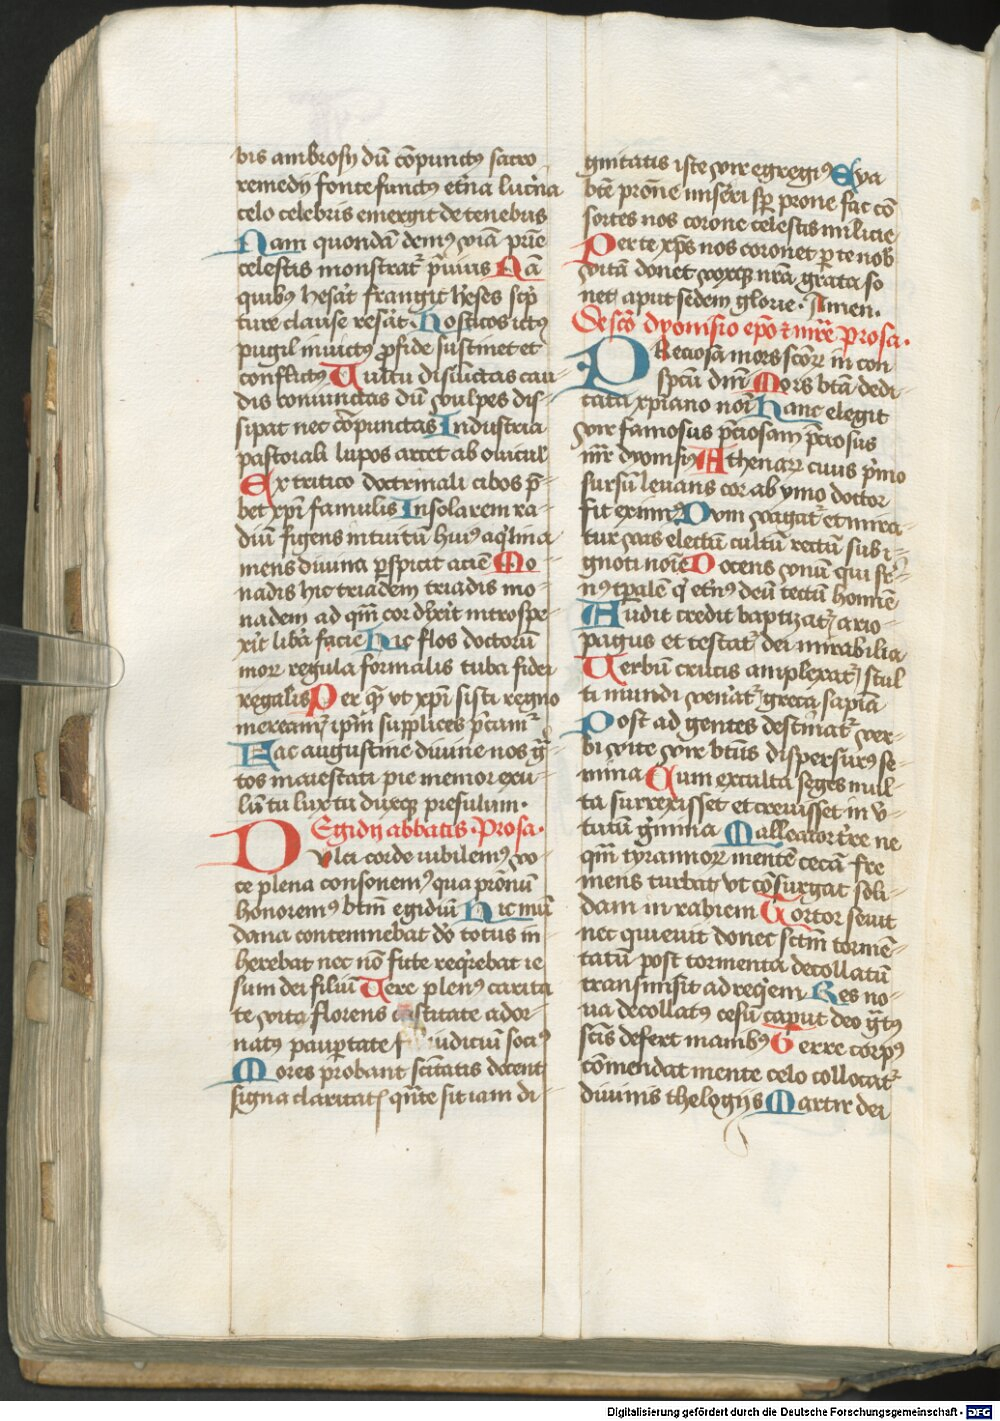 bis ambrosij dū cōpunctꝯ sacro
remedij fonte functꝯ et̄na lucerna
celo celebris emergit de tenebris
Nam quondā demꝯ viā prīe
celestis monstratᷣ p̄uiuis Nā
quibꝯ hesāt frangit h̄eses sc̄p
ture clause res̄at. Hosticos ictꝯ
pugil inuictꝯ ꝓ fide sustinet et
conflictꝯ Vultu disiūctas cau⸗
dis coniunctas dū vulpes dis⸗
sipat nec cōpunctas Industria
pastorali lupos arcet ab ouicul̄
Ex tritico doctrinali cibos p̄⸗
bet xp̄i famulis In solarem ra⸗
diū figens intuitū huiꝯ aq̇lina
mens diuina ꝑspicit aciē Mo⸗
nadis hic triadem triadis mo⸗
nadem ad qm̄ cor dix̄it introspe⸗
xit lib̄a facie Hic flos doctorū
mor regula formalis tuba fidei
regalis Per qē vt xp̄i sisti regno
mereamᷣ ip̄m supplices p̄camᷣ
Hac augustine diuine nos g̈⸗
tos maiestati pie memor exu⸗
lū tu lux tu duxqꝫ presulum.
Egidij abbatis. Prosa.
Dulci corde iubilemꝯ vo⸗
ce plena consonemꝯ qua pr̄onū
honoremꝯ btm̄ egidiū Hic mū
dana contemnebat dō totus in
herebat nec nō fute req̇rebat ie
sum dei filiū Vere plenꝯ carita
te vita florens castitate ador⸗
natꝯ pauꝑtate iudiciū sociꝯ
Mores probant sc̄itatis docent
signa claritatꝭ qn̄te sit iam di⸗
gnitatis iste vir egregiꝯ Eya
btē pron̄e mis̄eri sp̄ prone fac cō
sortes nos corone celestis milicie
Per te xp̄s nos coronet ꝑ te nob̄
vitā donet voxqꝫ nr̄a grata so
net aput sedem glorie. Amen.
De scō dyonisio ep̄o et mr̄e Prosa.
PReciosa mors scōꝝ in con
spc̄u dn̄i Moris btā dedi⸗
cata xpiano noī Hanc elegit
vir famosus p̄ciosam p̄ciosus
mr̄ dyonisiꝯ Athenaꝝ cuius p̄mo
sursū leuans cor ab ymo doctor
fit eximiꝯ Dum vagatᷣ et mira⸗
tur vas electū cultū rectū sub i⸗
gnoti noīe Docens vnū qui sit⸗
nꝯ tꝑalē q̇ et̄nꝯ deū tectū homīe
Audit credit baptizatᷣ ario⸗
pagus et testatᷣ dei mirabilia
Verbū crucis amplexatᷣ stul
ti mundi venātᷣ greca sapīa
Post ad gentes destinatᷣ ver⸗
bi vite vir btūs dispersurꝯ se⸗
mina Cum exculta seges mul⸗
ta surrexisset et creuisset in v̄⸗
tutū g̈mina Malleator t̄re ne
qm̄ tyrannoꝝ mentē cecā fre⸗
mens turbat vt cōsurgat soli⸗
dam in rabiem Tortor seuit
nec quieuit donec sctm̄ tormē⸗
tatū post tormenta decollatū
transmisit ad req̇em Res no⸗
ua decollatꝯ cesū caput deo g̈tꝯ
scīs defert manibꝯ Terre corpꝯ
cōmendat mente celo collocatᷣ
diuinis thelogijs Martir dei
Digitalisierung gefördert durch die Deutsche Forschungsgemeinschaft - DFG